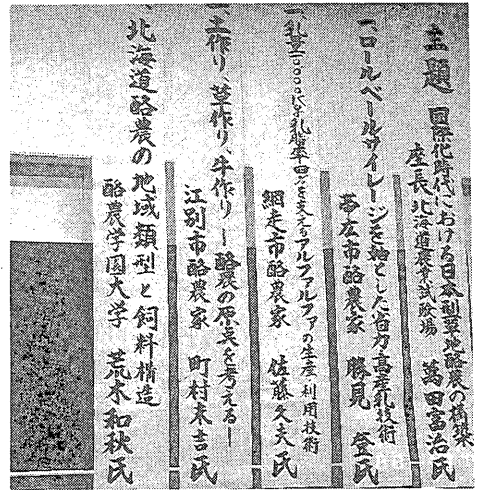 主題 国際化時代における日本型草地酪農の構築
座長 北海道農業試験場 萬田富治氏
一、ロールベールサイレージを軸とした省力高産乳技術
帯広市酪農家 勝見 登氏
一、乳量一〇〇〇〇 乳脂率四 を支えるアルファルファの生産利用技術
網走市酪農家 佐藤久夫氏
一、土作り、草作り、牛作り ー酪農の原点を考えるー
江別市酪農家 町村末吉氏
、北海道酪農の地域類型と飼料構造
酪農学園大学 荒木和秋氏